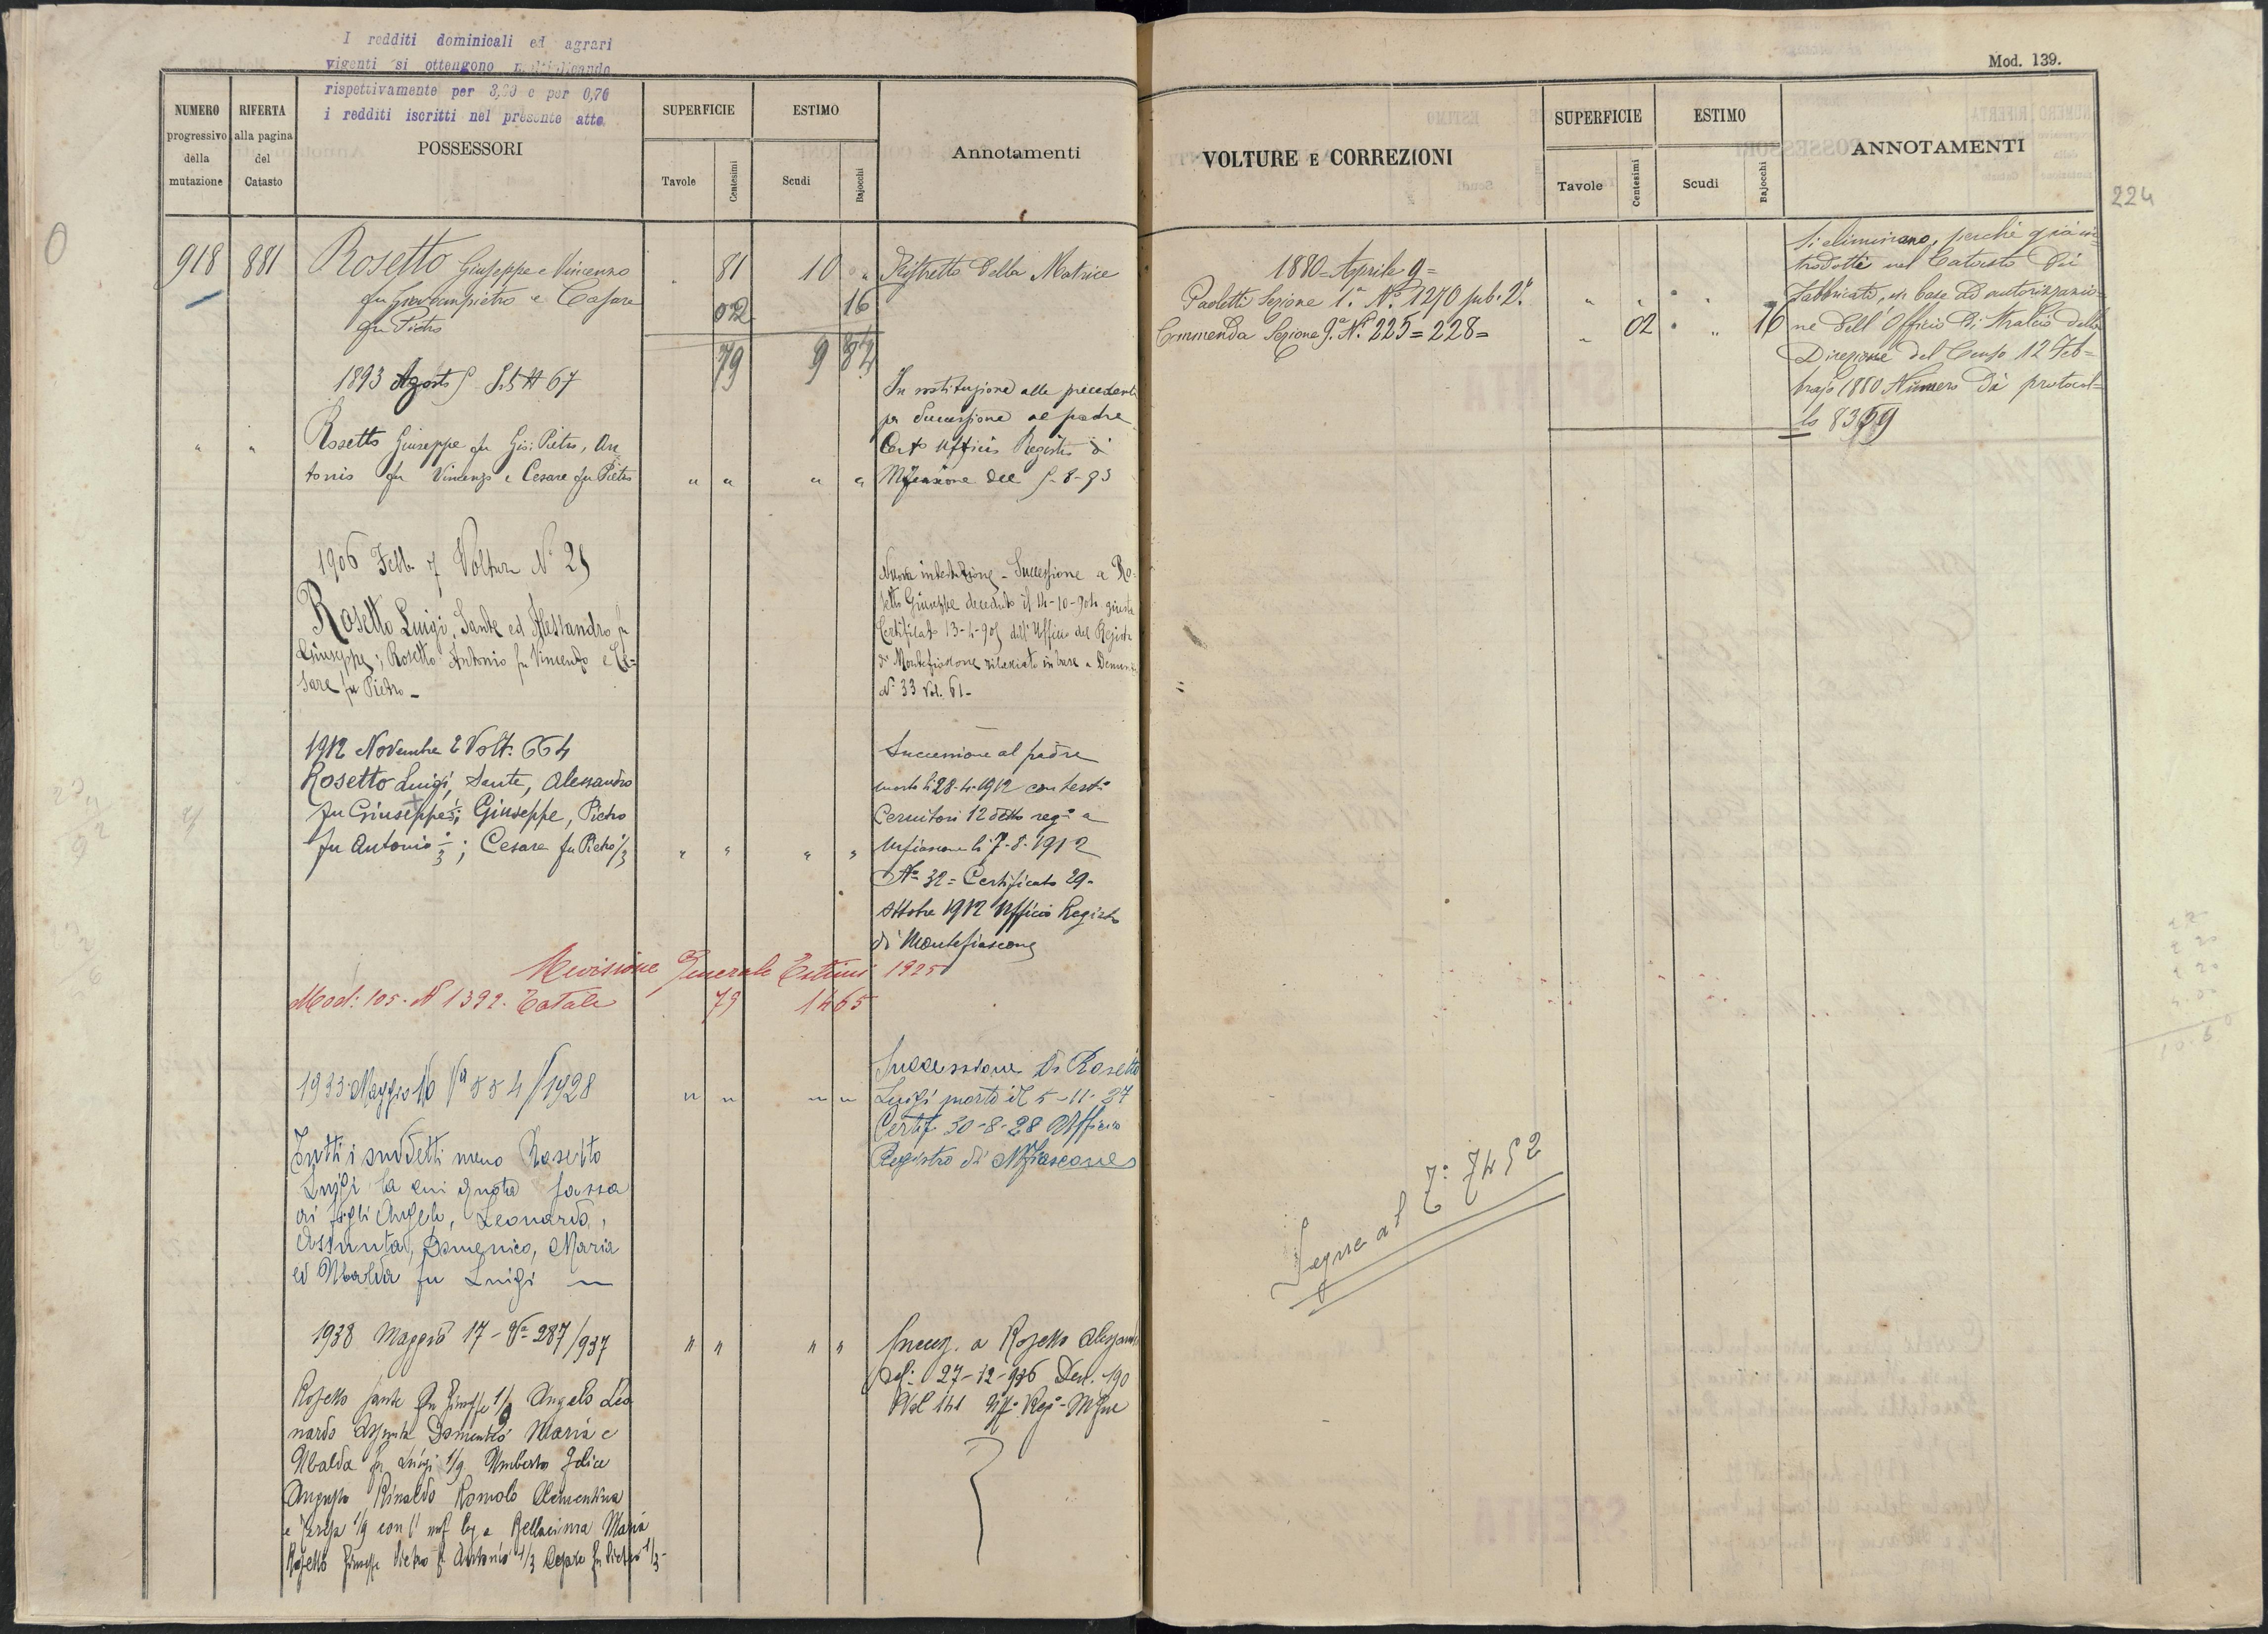 I redditi dominicali ed agrari
vigenti si ottengono moltiplicando
rispettivamente per 3,20 e per 0,70
i redditi iscritti nel presente atto.
NUMERO
progressivo
della
mutazione
RIFERTA
alla pagina
del
Catasto
POSSESSORI
SUPERFICIE
Tavole
Centesimi
ESTIMO
Scudi
Bajocchi
Annotamenti
918 881 Rosetto Giuseppe e Vincenzo 81 10 Ristretto della Matrice
fu Giovanpietro e Cesare 02 16
fu Pietro
79 9 84
1893 Agosto 5
In sostituzione alle precedenti
per Successione al padre
Rosetto Giuseppe fu Gio: Pietro, An-
Certo Ufficio Registro di
tonio fu Vincenzo e Cesare fu Pietro " " " " Mfiascone del 5-8-93
1906 Febb. 7 Voltura N° 25
Nuova intestazione - Successione a Ro-
setto Giuseppe deceduto il 14-10-904 giusta
Certificato 13-4-905 dell'Ufficio del Registro
di Montefiascone rilasciato in base a Denunzia
N° 33 Vol. 61-
Rosetto Luigi, Sante ed Alessandro fu
Giuseppe; Rosetto Antonio fu Vincenzo e Ce-
sare fu Pietro -
1912 Novembre 2 Volt. 664
Rosetto Luigi, Sante, Alessandro
fu Giuseppe; Giuseppe, Pietro
fu Antonio 1/3; Cesare fu Pietro 1/3 " " " "
Successione al padre
morto li 28-4-1912 con testo
12 detto reg° a
Mfiascone li 7-8-1912
N° 32 = Certificato 29-
Ottobre 1912 Ufficio Registro
di Montefiascone
Revisione Generale Estimi 1925
Mod: 105. N 1392. Totale 79 14 65
1933 Maggio 10 Va 554/1928 " " " "
Successione di Rosetto
Luigi morto il 5-11-27
Certif. 30-8-28 Ufficio
Registro di Mfiascone
Tutti i suddetti meno Rosetto
Luigi la cui quota passa
ai figli Angelo, Leonardo,
Assunta, Domenico, Maria
ed Ubalda fu Luigi
1938 Maggio 17 - Va 287/937 " " " "
Success. a Rosetto Alessandro
27-12-936 Den. 190
Vol 141 Uff° Reg° Mfne
Rosetto Sante fu Giuseppe 1/9 Angelo Leo
nardo Assunta Domenico Maria e
Ubalda fu Luigi 1/9 Umberto Felice
Augusto Rinaldo Romolo Clementina
e 1/9 con l' usf leg a Bellacima Maria
Rosetto Giuseppe Pietro fu Antonio 1/3 Cesare fu Pietro 1/3-
Mod. 139.
VOLTURE E CORREZIONI
SUPERFICIE
Tavole
Centesimi
ESTIMO
Scudi
Bajocchi
ANNOTAMENTI
224
1880 = Aprile 9 =
Paoletti Sezione 1.a N.° 1270 sub. 2.°
Commenda Sezione 9.a N.° 225 = 228 = 02 16
Si eliminano, perché già in-
trodotti nel Catasto dei
fabbricati, in base ad autorizzazio-
ne dell'Officio di Stralcio della
Direzione del Censo 12 Feb-
brajo 1880 Numero di protocol-
lo 8359
Segue al 7° 7452